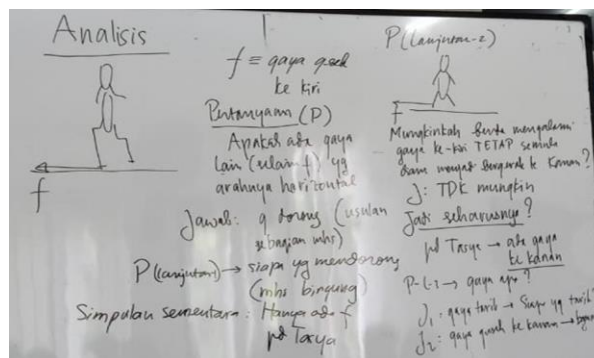 Analisis
f
f = gaya gesek
ke kiri
Pertanyaan (P)
Apakah ada gaya
lain (selain f) yg
arahnya horizontal
Jawab: g dorong (usulan
sebagian mhs)
P(lanjutan) → siapa yg mendorong
(mhs bingung)
Simpulan sementara: Hanya ada f
pd Tasya
P(lanjutan-2)
f
Mungkinkah benda mengalami
gaya ke-kiri TETAP semula
diam menjadi bergerak ke kanan?
J: TDK mungkin
Jadi seharusnya?
pd Tasya → ada gaya
ke kanan
P-L-1 → gaya apa?
J1: gaya tarik → Siapa yg tarik?
J2: gaya gesek ke kanan →